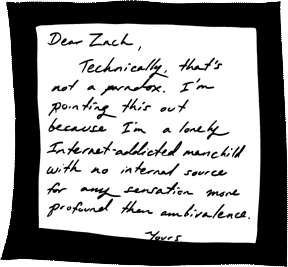 Dear Zach,
Technically, that's
not a paradox. I'm
pointing this out
because I'm a lonely
Internet-addicted manchild
with no internal source
for any sensation more
profound than ambivalence.
Yours